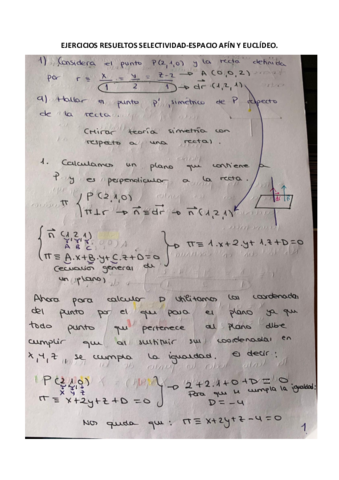 EJERCICIOS RESUELTOS SELECTIVIDAD-ESPACIO AFÍN Y EUCLÍDEO.
1) Considera el punto P(2,1,0) y la recta definida
por r ≡ x/1 = y/2 = z-2/1 → A(0,0,2) → dr(1,2,1)
a) Hallar el punto P', simétrico de P respecto
de la recta.
(Mirar teoría simetría con
respecto a una recta).
1. Calculamos un plano que contiene a
P y es perpendicular a la recta.
π { P(2,1,0)
π⊥r → n ≡ dr → n(1,2,1)
{ n(1,2,1)
A B C
π ≡ A.x+B.y+C.z+D=0 } → π ≡ 1.x+2.y+1.z+D=0
(ecuación general de
un plano)
Ahora para calcular D utilizamos las coordenadas
del punto por el que pasa el plano ya que
todo punto que pertenece al plano debe
cumplir que al sustituir sus coordenadas en
x, y, z, se cumpla la igualdad. Es decir:
P(2,1,0)
x y z
π ≡ x+2y+z+D=0 } → 2+2.1+0+D=0
Para que se cumpla la igualdad:
D=-4
Nos queda que: π ≡ x+2y+z-4=0
1